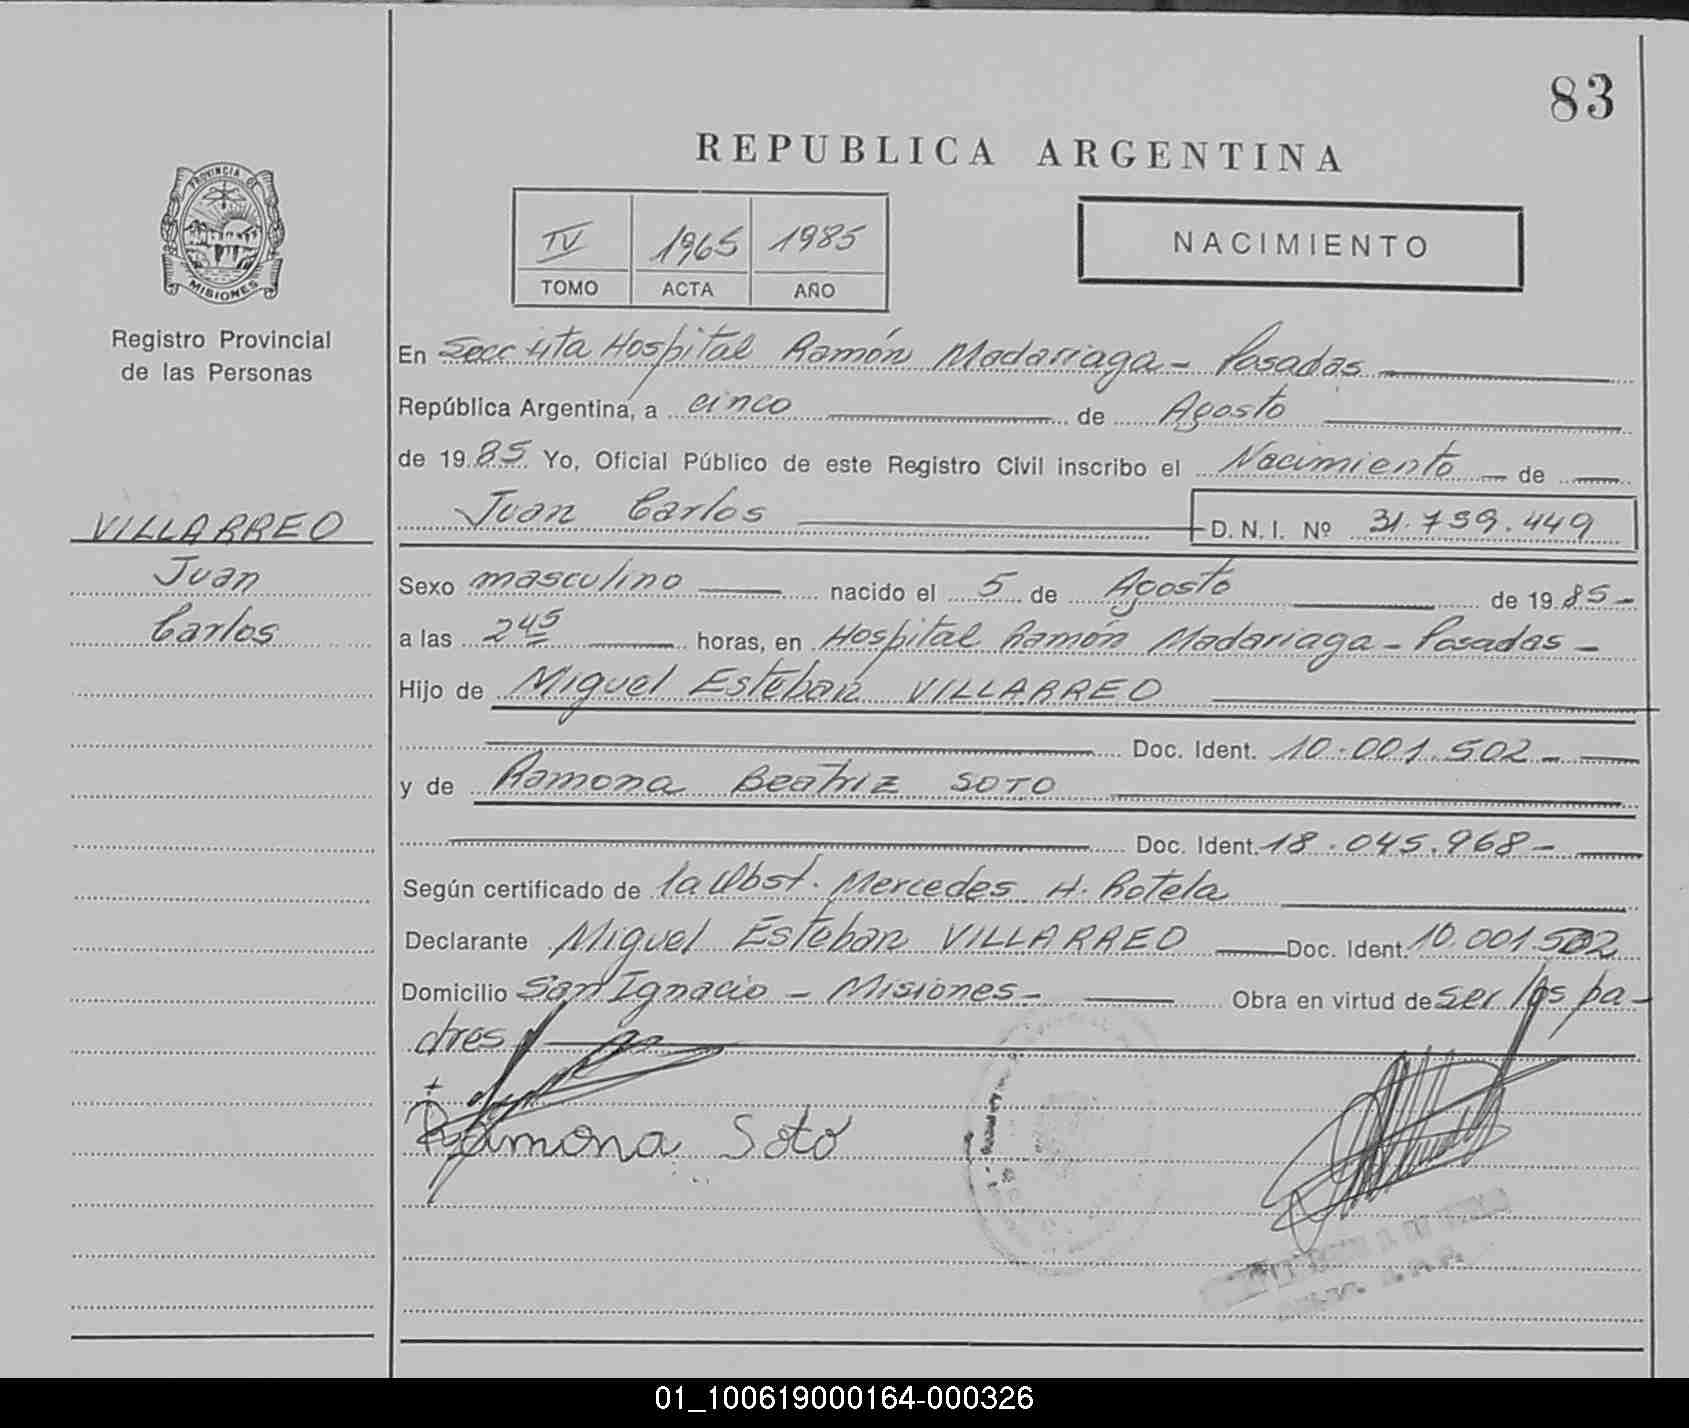 83
REPUBLICA ARGENTINA
PROVINCIA DE
MISIONES
Registro Provincial
de las Personas
IV 1965 1985
TOMO ACTA AÑO
NACIMIENTO
En Secc 4ta Hospital Ramón Madariaga - Posadas
República Argentina, a cinco de Agosto
de 1985 Yo, Oficial Público de este Registro Civil inscribo el Nacimiento de
Juan Carlos D. N. I. Nº 31.759.449
VILLARREO
Juan
Carlos
Sexo masculino nacido el 5 de Agosto de 1985-
a las 2 45 horas, en Hospital Ramón Madariaga - Posadas -
Hijo de Miguel Esteban VILLARREO
Doc. Ident. 10.001.502 -
y de Ramona Beatriz SOTO
Doc. Ident. 18.045.968 -
Según certificado de la Obst. Mercedes H. Rotela
Declarante Miguel Esteban VILLARREO Doc. Ident. 10.001.502
Domicilio San Ignacio - Misiones - Obra en virtud de ser los pa-
dres
Ramona Soto
01_100619000164-000326